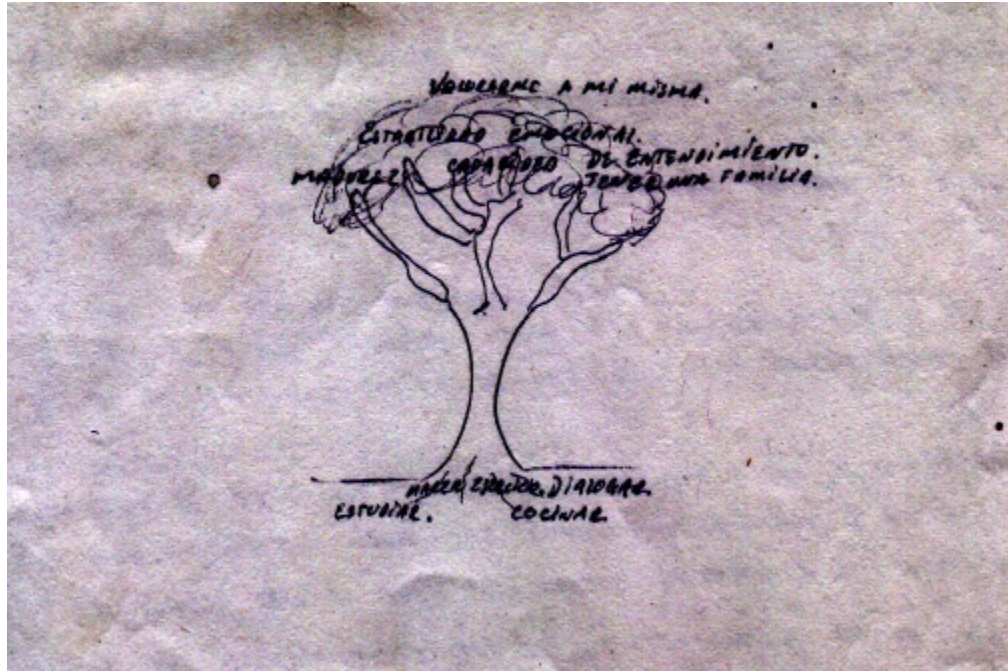 VALORARME A MI MISMA.
ESTABILIDAD EMOCIONAL.
MADUREZ CAPACIDAD DE ENTENDIMIENTO.
TENER UNA FAMILIA.
HACER DIALOGAR
ESTUDIAR. COCINAR